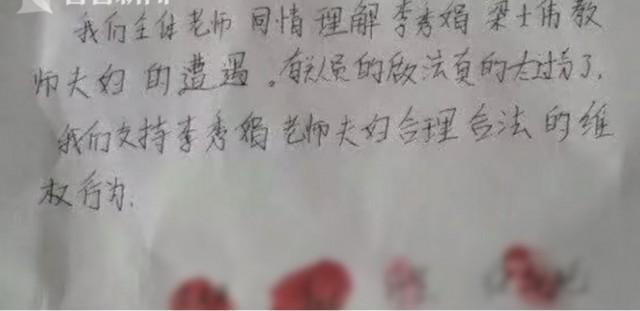 我们全体老师 同情 理解 李秀娟 梁士伟教
师夫妇 的 遭遇。有关人员的做法真的太过分了,
我们支持李秀娟老师夫妇合理合法的维
权行为.